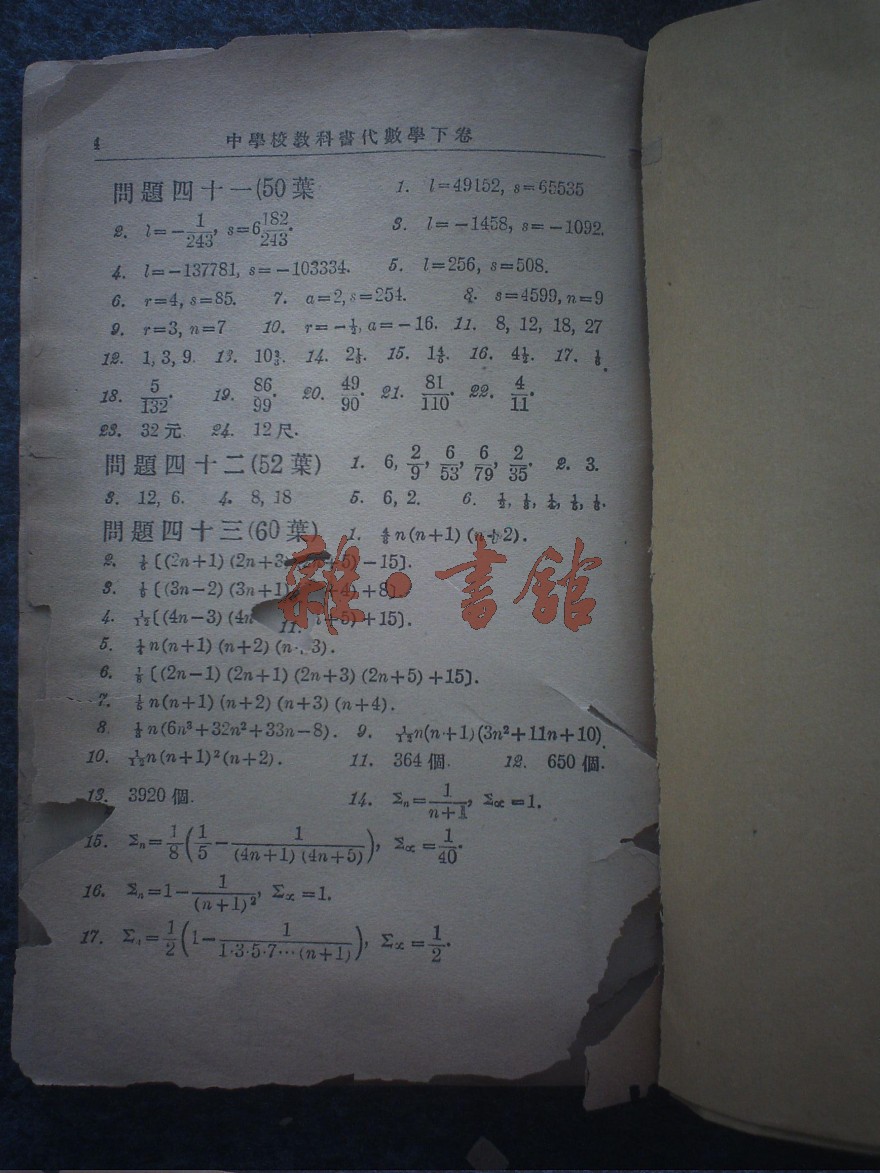 4 中學校教科書代數學下卷
問題四十一(50葉 1. l=49152, s=65535
2. l=-1/243, s=6 182/243. 3. l=-1458, s=-1092.
4. l=-137781, s=-103334. 5. l=256, s=508.
6. r=4, s=85. 7. a=2, s=254. 8. s=4599, n=9
9. r=3, n=7 10. r=-½, a=-16. 11. 8, 12, 18, 27
12. 1, 3, 9. 13. 14. 15. 16. 4½. 17.
18. 5/132. 19. 86/99. 20. 49/90. 21. 81/110. 22. 4/11.
23. 32元 24. 12尺.
問題四十二(52葉) 1. 6, 2/9, 6/53, 6/79, 2/35. 2. 3.
3. 12, 6. 4. 8, 18 5. 6, 2. 6.
問題四十三(60葉) 1. n(n+1)(n+2).
2. [(2n+1)(2n+3 +5)-15].
3. [(3n-2)(3n+1) +4)+8].
4. 1/12[(4n-3)(4n +5)+15].
雜·書館
11.
5. ¼n(n+1)(n+2)(n+3).
6. ⅛[(2n-1)(2n+1)(2n+3)(2n+5)+15].
7. ⅕n(n+1)(n+2)(n+3)(n+4).
8. n(6n³+32n²+33n-8). 9. 1/12n(n+1)(3n²+11n+10).
10. 1/12n(n+1)²(n+2). 11. 364個. 12. 650個.
13. 3920個. 14. Σn=1/(n+1), Σ∝=1.
15. Σn=1/8(1/5-1/((4n+1)(4n+5))), Σ∝=1/40.
16. Σn=1-1/(n+1)², Σ∝=1.
17. Σn=1/2(1-1/(1·3·5·7···(n+1))), Σ∝=1/2.